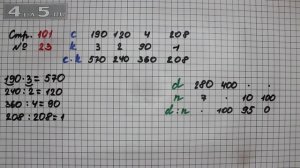 4na5.ru
Стр. 101
№ 23
c 190 120 4 208
k 3 2 90 1
c·k 570 240 360 208
190·3=570
240:2=120
360:4=90
208:208=1
d 280 400 · ·
n 7 · 10 100
d:n · 100 95 0